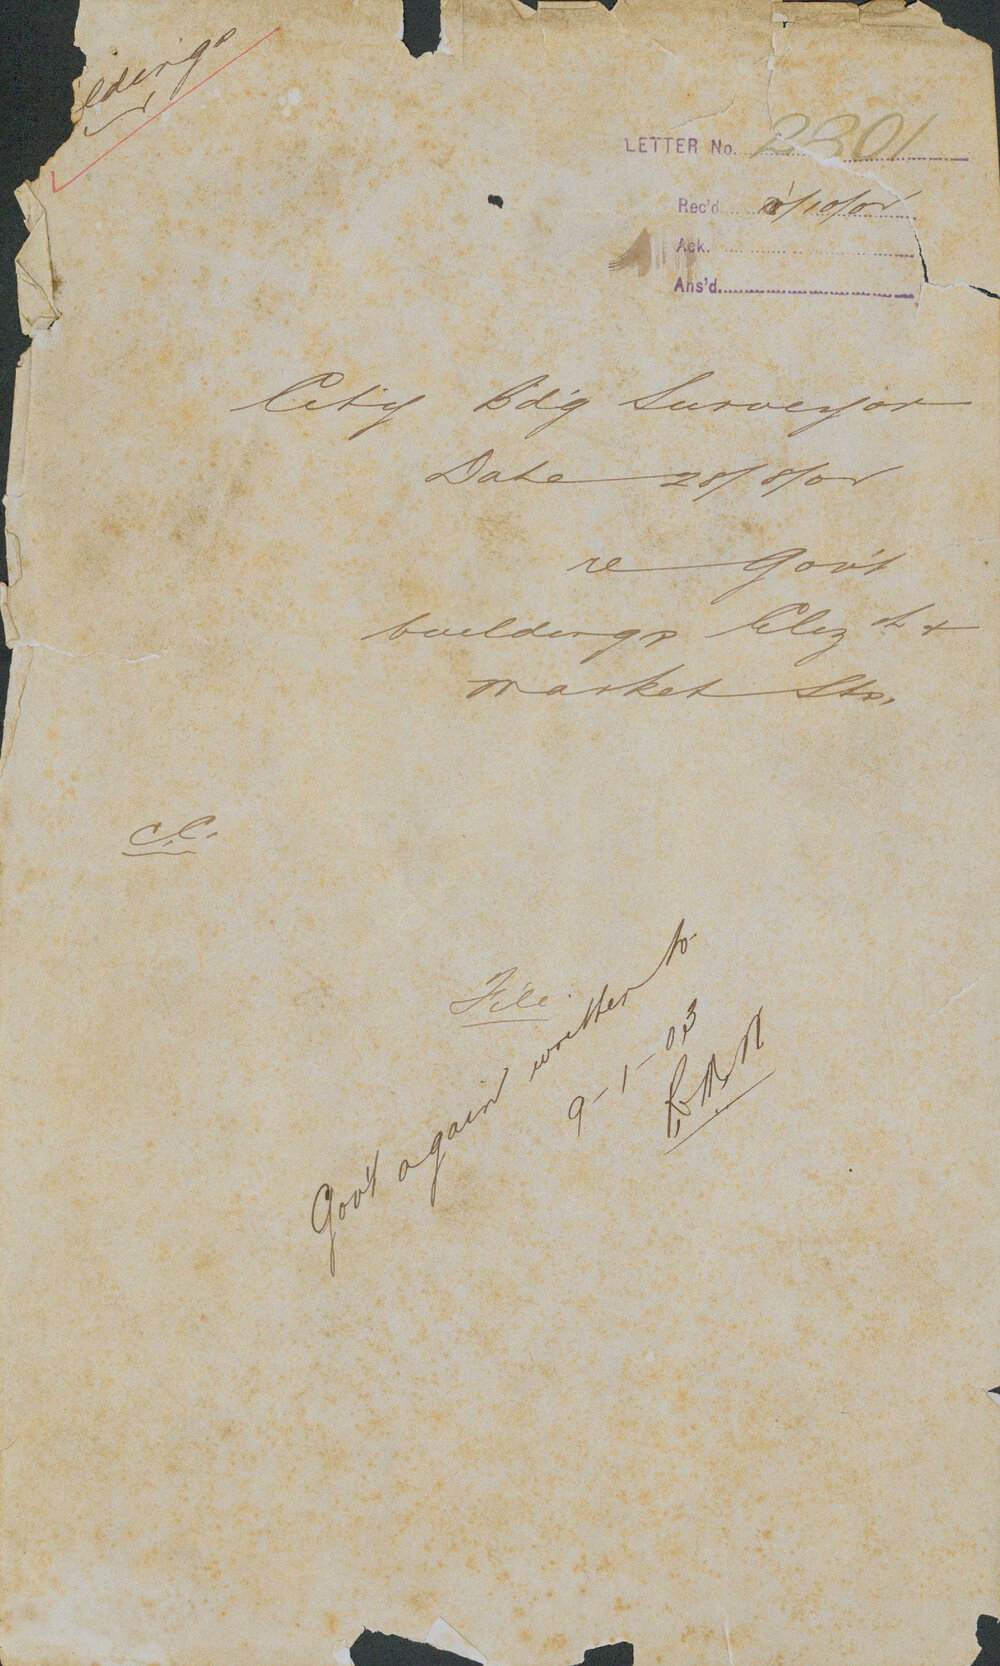 ldings
LETTER No. 2801
Rec'd /10/02
Ack.
Ans'd
City B'd'g Surveyor
Date
re Gov't
buildings Eliz th +
Market Sts.
C.C.
File
Gov't again written to
9-1-03